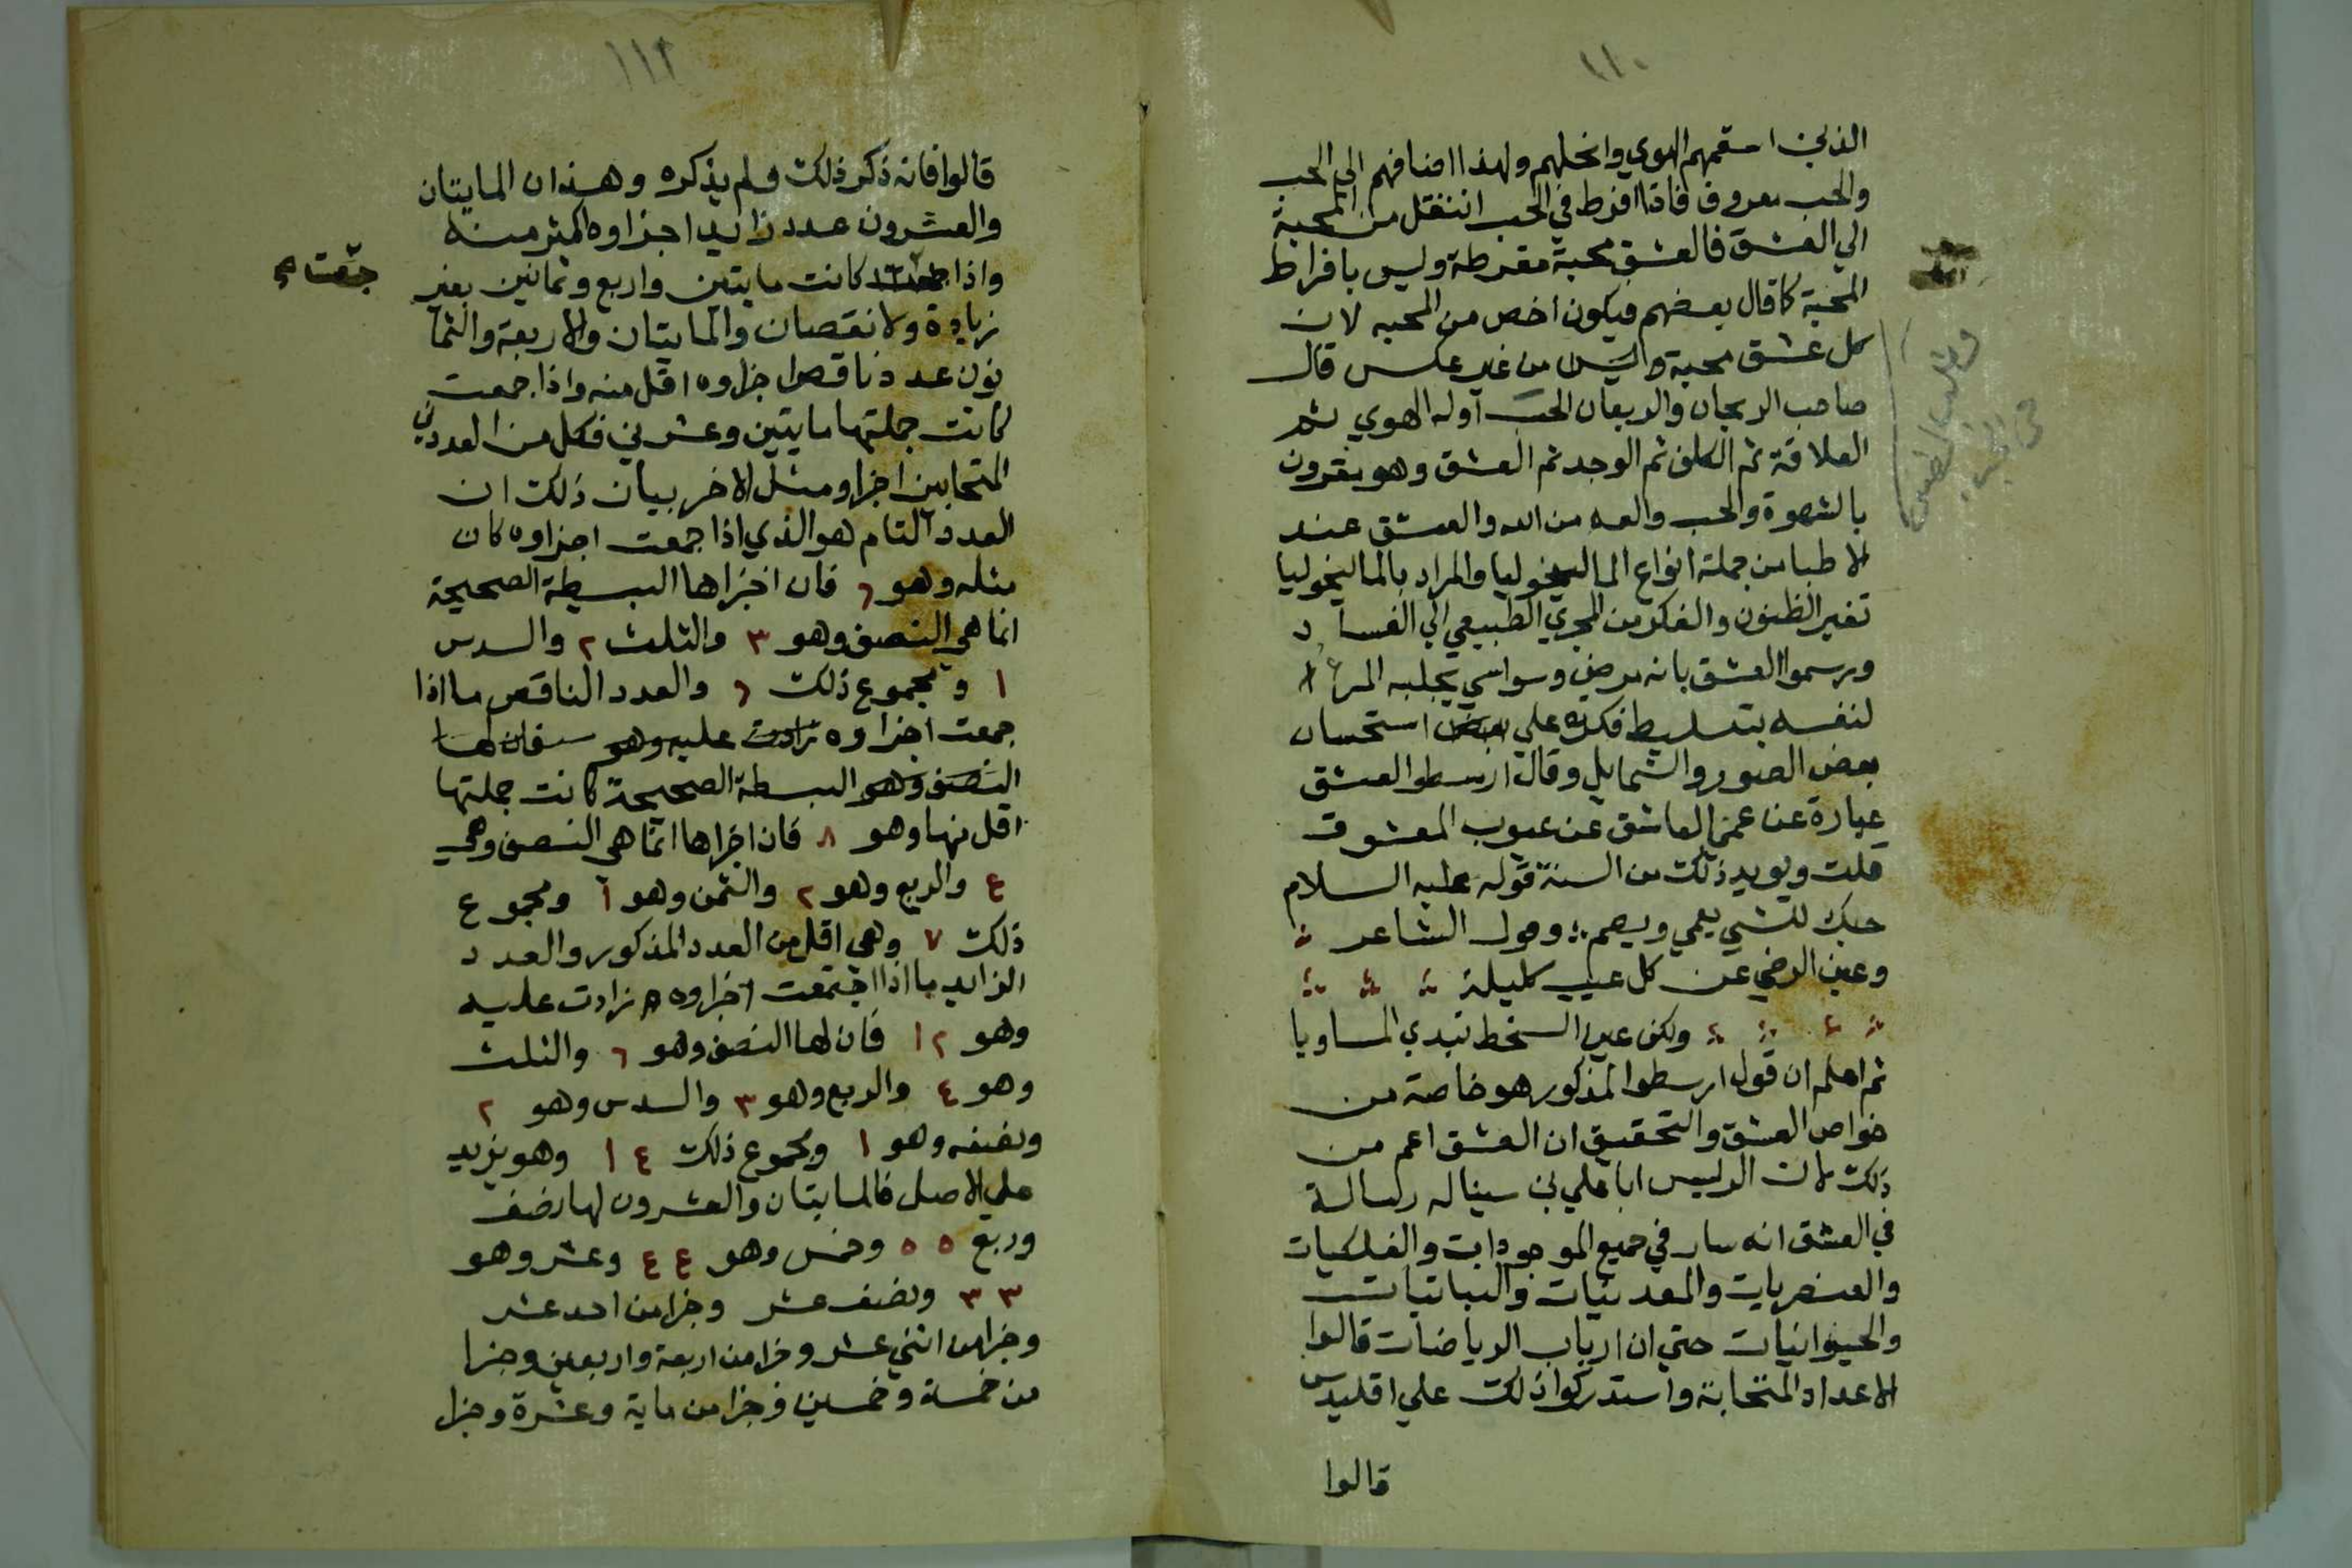 ١١٠
الذين اسقمهم الهوي وانحلهم ولهذا اضافهم الي الحب
والحب معروف فاذا افرط في الحب انتقل من المحبة
الي العشق فالعشق محبة مفرطة وليس بافراط
المحبة كما قال بعضهم فيكون اخص من المحبه لان
كل عشق محبة وليس من غير عكس قال
صاحب الريحان والريعان الحب اوله الهوي ثم
العلاقة ثم الكلف ثم الوجد ثم العشق وهو مقرون
بالشهوة والحب والعه من الله والعشق عند
الاطبا من جملة انواع الماليخوليا والمراد بالماليخوليا
تغير الظنون والفكر من المجري الطبيعي الي الفساد
ورسموا العشق بانه مرض وسواسي يجلبه المرء
لنفسه بتسليط فكرته علي بعض استحسان
بعض الصور والشمايل وقال ارسطو العشق
عبارة عن عمي العاشق عن عيوب المعشوق
قلت ويويد ذلك من السنة قوله عليه السلام
حبك للشي يعمي ويصم وقول الشاعر
وعين الرضي عن كل عيب كليلة
ولكن عين السخط تبدي المساويا
ثم اعلم ان قول ارسطوا المذكور هو خاصة من
خواص العشق والتحقيق ان العشق اعم من
ذلك لان الرييس ابا علي بن سينا له رسالة
في العشق انه سار في جميع الموجودات والفلكيات
والعنصريات والمعدنيات والنباتيات
والحيوانيات حتي ان ارباب الرياضات قالوا
الاعداد المتحابة واستدركوا ذلك علي اقليدس
قالوا
١١٢
قالوا فانه ذكر ذلك ولم يذكره وهذان المايتان
والعشرون عدد زايد اجزاوه اكثر منه
واذا جمعت كانت مايتين واربع وثمانين بغير
جمعت
زيادة ولا نقصان والمايتان والاربعة والثما
نون عدد ناقص اجزاوه اقل منه واذا جمعت
كانت جملتها مايتين وعشرين فكل من العددين
المتحابين اجزاو مثل الاخر بيان ذلك ان
العدد التام هو الذي اذا جمعت اجزاوه كان
مثله وهو ٦ فان اجزاها البسيطة الصحيحة
انما هي النصف وهو ٣ والثلث ٢ والسدس
١ ومجموع ذلك ٦ والعدد الناقص ما اذا
جمعت اجزاوه زادت عليه وهو فان لها
النصف وهو البسطة الصحيحة كانت جملتها
اقل منها وهو ٨ فان اجزاها انما هي النصف وهي
٤ والربع وهو ٢ والثمن وهو ١ ومجموع
ذلك ٧ وهي اقل من العدد المذكور والعدد
الزايد ما اذا اجتمعت اجزاوه زادت عليه
وهو ١٢ فان لها النصف وهو ٦ والثلث
وهو ٤ والربع وهو ٣ والسدس وهو ٢
ونصفه وهو ١ ومجموع ذلك ١٤ وهو يزيد
علي الاصل فالمايتان والعشرون لها نصف
وربع ٥٥ وخمس وهو ٤٤ وعشر وهو
٣٣ ونصف عشر وجزا من احد عشر
وجزا من اثني عشر وجزا من اربعة واربعين وجزا
من خمسة وخمسين وجزا من ماية وعشرة وجزا